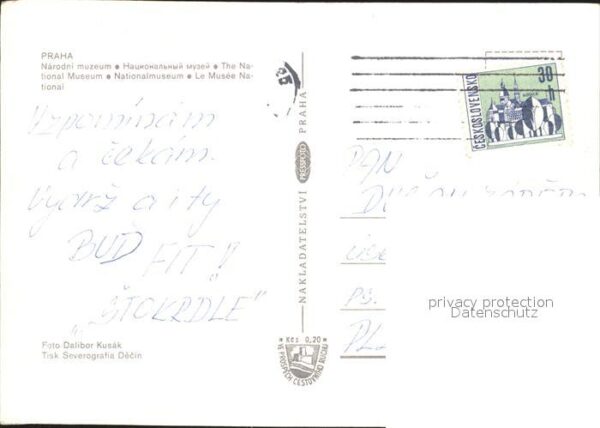 PRAHA
Národní muzeum ● Национальный музей ● The Na-
tional Museum ● Nationalmuseum ● Le Musée Na-
tional
Vzpomínám
a čekám.
Vydrž a i ty
BUĎ FIT!
"ŠTOKRDLE"
Foto Dalibor Kusák
Tisk Severografia Děčín
NAKLADATELSTVÍ PRESSFOTO PRAHA
Kčs 0,20
VE PROSPĚCH CESTOVNÍHO RUCHU
30 h
ČESKOSLOVENSKO
PAN
privacy protection
Datenschutz